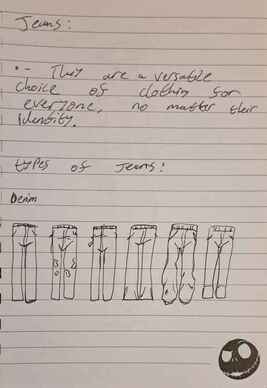 Jeans:
•- They are a versatile
choice of clothing for
everyone, no matter their
identity.
types of Jeans:
Denim